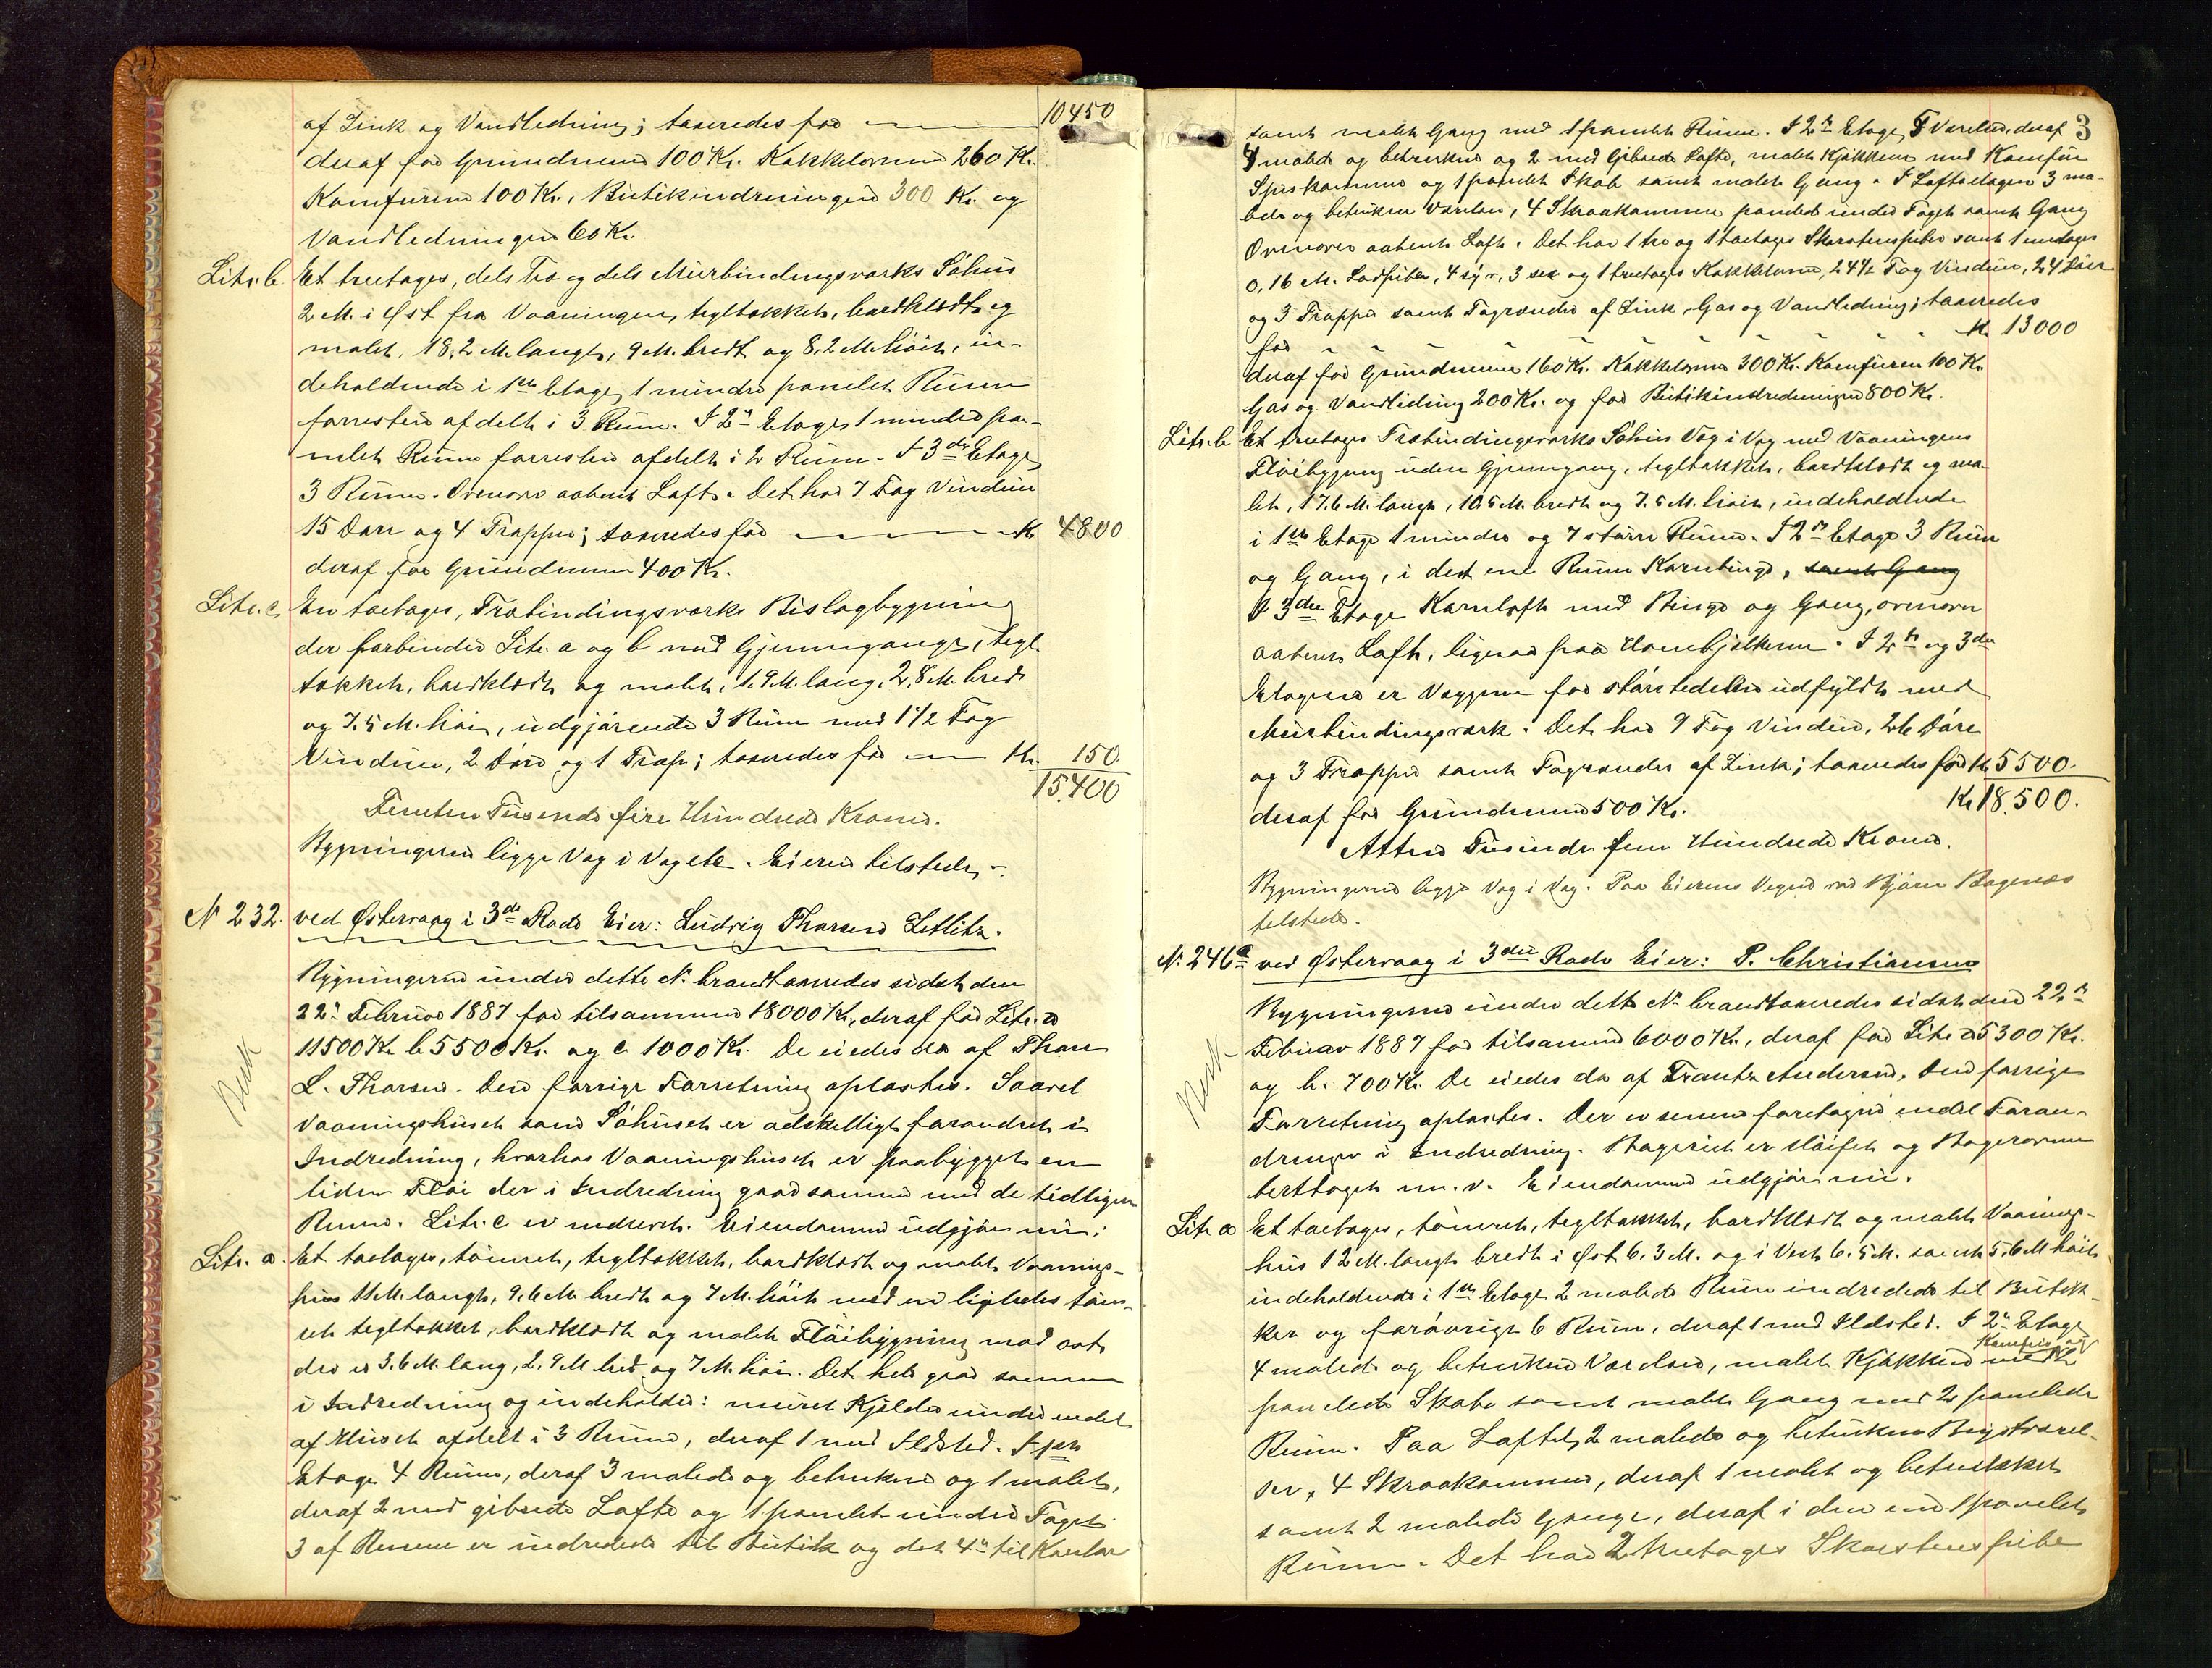 af Zink og Vandledning; taxeredes for 10450
deraf for Grundmuren 100 Kr. Kakkelovnene 260 Kr.
Komfuren 100 Kr., Butikindredningen 300 Kr. og
Vandledningen 60 Kr.
Litr. b. Et treetages, dels Træ og dels Murbindingsværks Søhus
2 M. i Øst fra Vaaningen, tegltækket, bordklædt og
malet. 18,2 M. langt, 9 M. bredt og 8,2 M. høit, in-
deholdende i 1ste Etage 1 mindre panelet Rum
forresten afdelt i 3 Rum. I 2n Etage 1 mindre pa-
nelet Rum forresten afdelt i 2 Rum. I 3die Etage
3 Rum. Ovenover aabent Loft. Det har 7 Fag Vinduer
15 Døre og 4 Trapper; taxeredes for Kr. 4800
deraf for Grundmuren 400 Kr.
Litr. c. En toetages, Træbindingsværks Bislagbygning
der forbinder Litr. a og b med Gjennemgange, tegl-
tækket, bordklædt og malet, 1,9 M. lang, 2,8 M. bred
og 7,5 M. høi, udgjørende 3 Rum med 1 1/2 Fag
Vinduer, 2 Døre og 1 Trap; taxeredes for Kr. 150
15.400
Femten Tusende fire Hundrede Kroner.
Bygningerne ligge Væg i Væg etc. Eieren tilstede.
N 232. ved Østervaag i 3die Rode Eier: Ludvig Thorsen Zetlitz.
Bygningerne under dette N. brandtaxeredes sidst den
22n Februar 1887 for tilsammen 18000 Kr., deraf for Litr. a
11500 Kr. b 5500 Kr. og c 1000 Kr. De eiedes da af Thore
L. Thorsen. Den forrige Forretning oplæstes. Saavel
Vaaningshuset som Søhuset er adskilligt forandret i
Indredning, hvorhos Vaaningshuset er paabygget en
liden Fløi der i Indredning gaar sammen med de tidligere
Rum. Litr. c er nedrevet. Eiendommen udgjør nu:
Litr. a. Et toetages, tømret, tegltækket, bordklædt og malet Vaanings-
hus 11 M. langt, 9,6 M. bredt og 7 M. høit med en ligeledes tøm-
ret tegltækket, bordklædt og malet Fløibygning mod ost
der er 3,6 M. lang, 2,9 M. bred og 7 M. høi. Det hele gaar sammen
i Indredning og indeholder: muret Kjælder under endel
af Huset afdelt i 3 Rum, deraf 1 med Ildsted. I 1ste
Etage 4 Rum, deraf 3 malede og betrukne og 1 malet,
deraf 2 med gibsede Lofte og 1 panelet under Taget
3 af Rummene er indredede til Butik og det 4n til Kontor
3
samt malet Gang med 1 panelet Rum. I 2n Etage 5 Værelser, deraf
4 malede og betrukne og 2 med gibsede Lofte, malet Kjøkken med Komfur
Spiskammer og 1 panelet Skab samt malet Gang. I Loftsetagen 3 ma-
lede og betrukne Værelser, 4 Skraakammere panelede under Taget samt Gang
Ovenover aabent Loft. Det har 1 tre og 1 toetages Skorstenspiber samt 1 enetages
0,16 M. Lodpiber, 4 syv, 3 sex og 1 treetages Kakkelovne, 24 1/2 Fag Vinduer, 24 Døre
og 3 Trapper samt Tagrender af Zink, Gas og Vandledning; taxeredes
for Kr 13000
deraf for Grundmuren 160 Kr. Kakkelovne 300 Kr. Komfuren 100 Kr.
Gas og Vandledning 200 Kr. og for Butikindredningen 800 Kr.
Litr. b Et treetages Træbindingsværks Søhus Væg i Væg med Vaaningens
Fløibygning uden Gjennemgang, tegltækket, bordklædt og ma-
let, 17,6 M. langt, 10,5 M. bredt og 7,5 M. høit, indeholdende
i 1ste Etage 1 mindre og 7 større Rum. I 2n Etage 3 Rum
og Gang, i det ene Rum Kornbinge, samt Gang
I 3die Etage Kornloft med Binge og Gang, ovenover
aabent Loft, ligesaa paa Hanebjelkerne. I 2n og 3die
Etagerne er Væggene for størstedelen udfyldt med
Murbindingsværk. Det har 9 Fag Vinduer, 26 Døre
og 3 Trapper samt Tagrender af Zink; taxeredes for Kr 5500.
deraf for Grundmuren 500 Kr. Kr 18.500.
Atten Tusinde fem Hundrede Kroner.
Bygningerne ligge Væg i Væg. Paa Eierens Vegne var Bjørn Bogenæs
tilstede.
N. 246a ved Østervaag i 3die Rode Eier: P. Christiansen
Bygningerne under dette N. brandtaxeredes sidst den 22n
Februar 1887 for tilsammen 6000 Kr., deraf for Litr. a 5300 Kr.
og b. 700 Kr. De eiedes da af Frantz Andersen. Den forrige
Forretning oplæstes. Der er senere foretagne endel Foran-
dringer i Indredning. Bageriet er sløifet og Bagerovnen
borttaget m. v. Eiendommen udgjør nu.
Litr. a Et toetages, tømret, tegltækket, bordklædt og malet Vaanings-
hus 12 M. langt bredt i Øst 6,3 M. og i Vest 6,5 M. samt 5,6 M. høit
indeholdende i 1ste Etage 2 malede Rum indredede til Butik-
ker og forøvrigt 6 Rum, deraf 1 med Ildsted. I 2n Etage
4 malede og betrukne Værelser, malet Kjøkken med Komfur og
panelede Skabe samt malet Gang med 2 panelede
Rum. Paa Loftet 2 malede og betrukne Kvistværel-
ser, 4 Skraakammere, deraf 1 malet og betrukket
samt 2 malede Gange, deraf i den ene 1 panelet
Rum. Det har 2 treetages Skorstenspiber